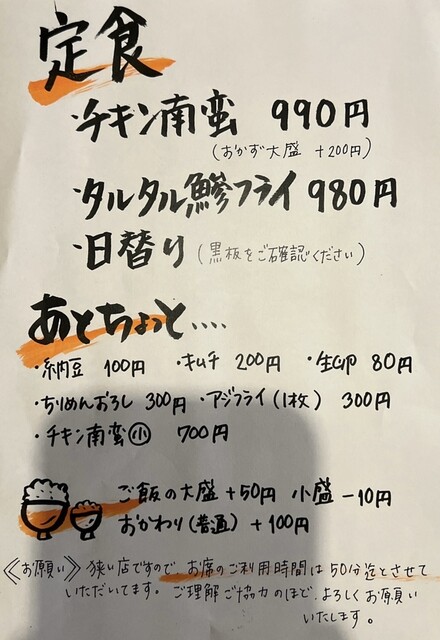 定食
・チキン南蛮 990円
(おかず大盛 +200円)
・タルタル鯵フライ 980円
・日替り (黒板をご確認ください)
あとちょっと‥‥
・納豆 100円 ・キムチ 200円 ・生卵 80円
・ちりめんおろし 300円 ・アジフライ(1枚) 300円
・チキン南蛮㊥ 700円
ご飯の大盛 +50円 小盛 -10円
おかわり(普通) +100円
《お願い》狭い店ですので、お席のご利用時間は50分迄とさせて
いただいてます。ご理解ご協力のほど、よろしくお願い
いたします。